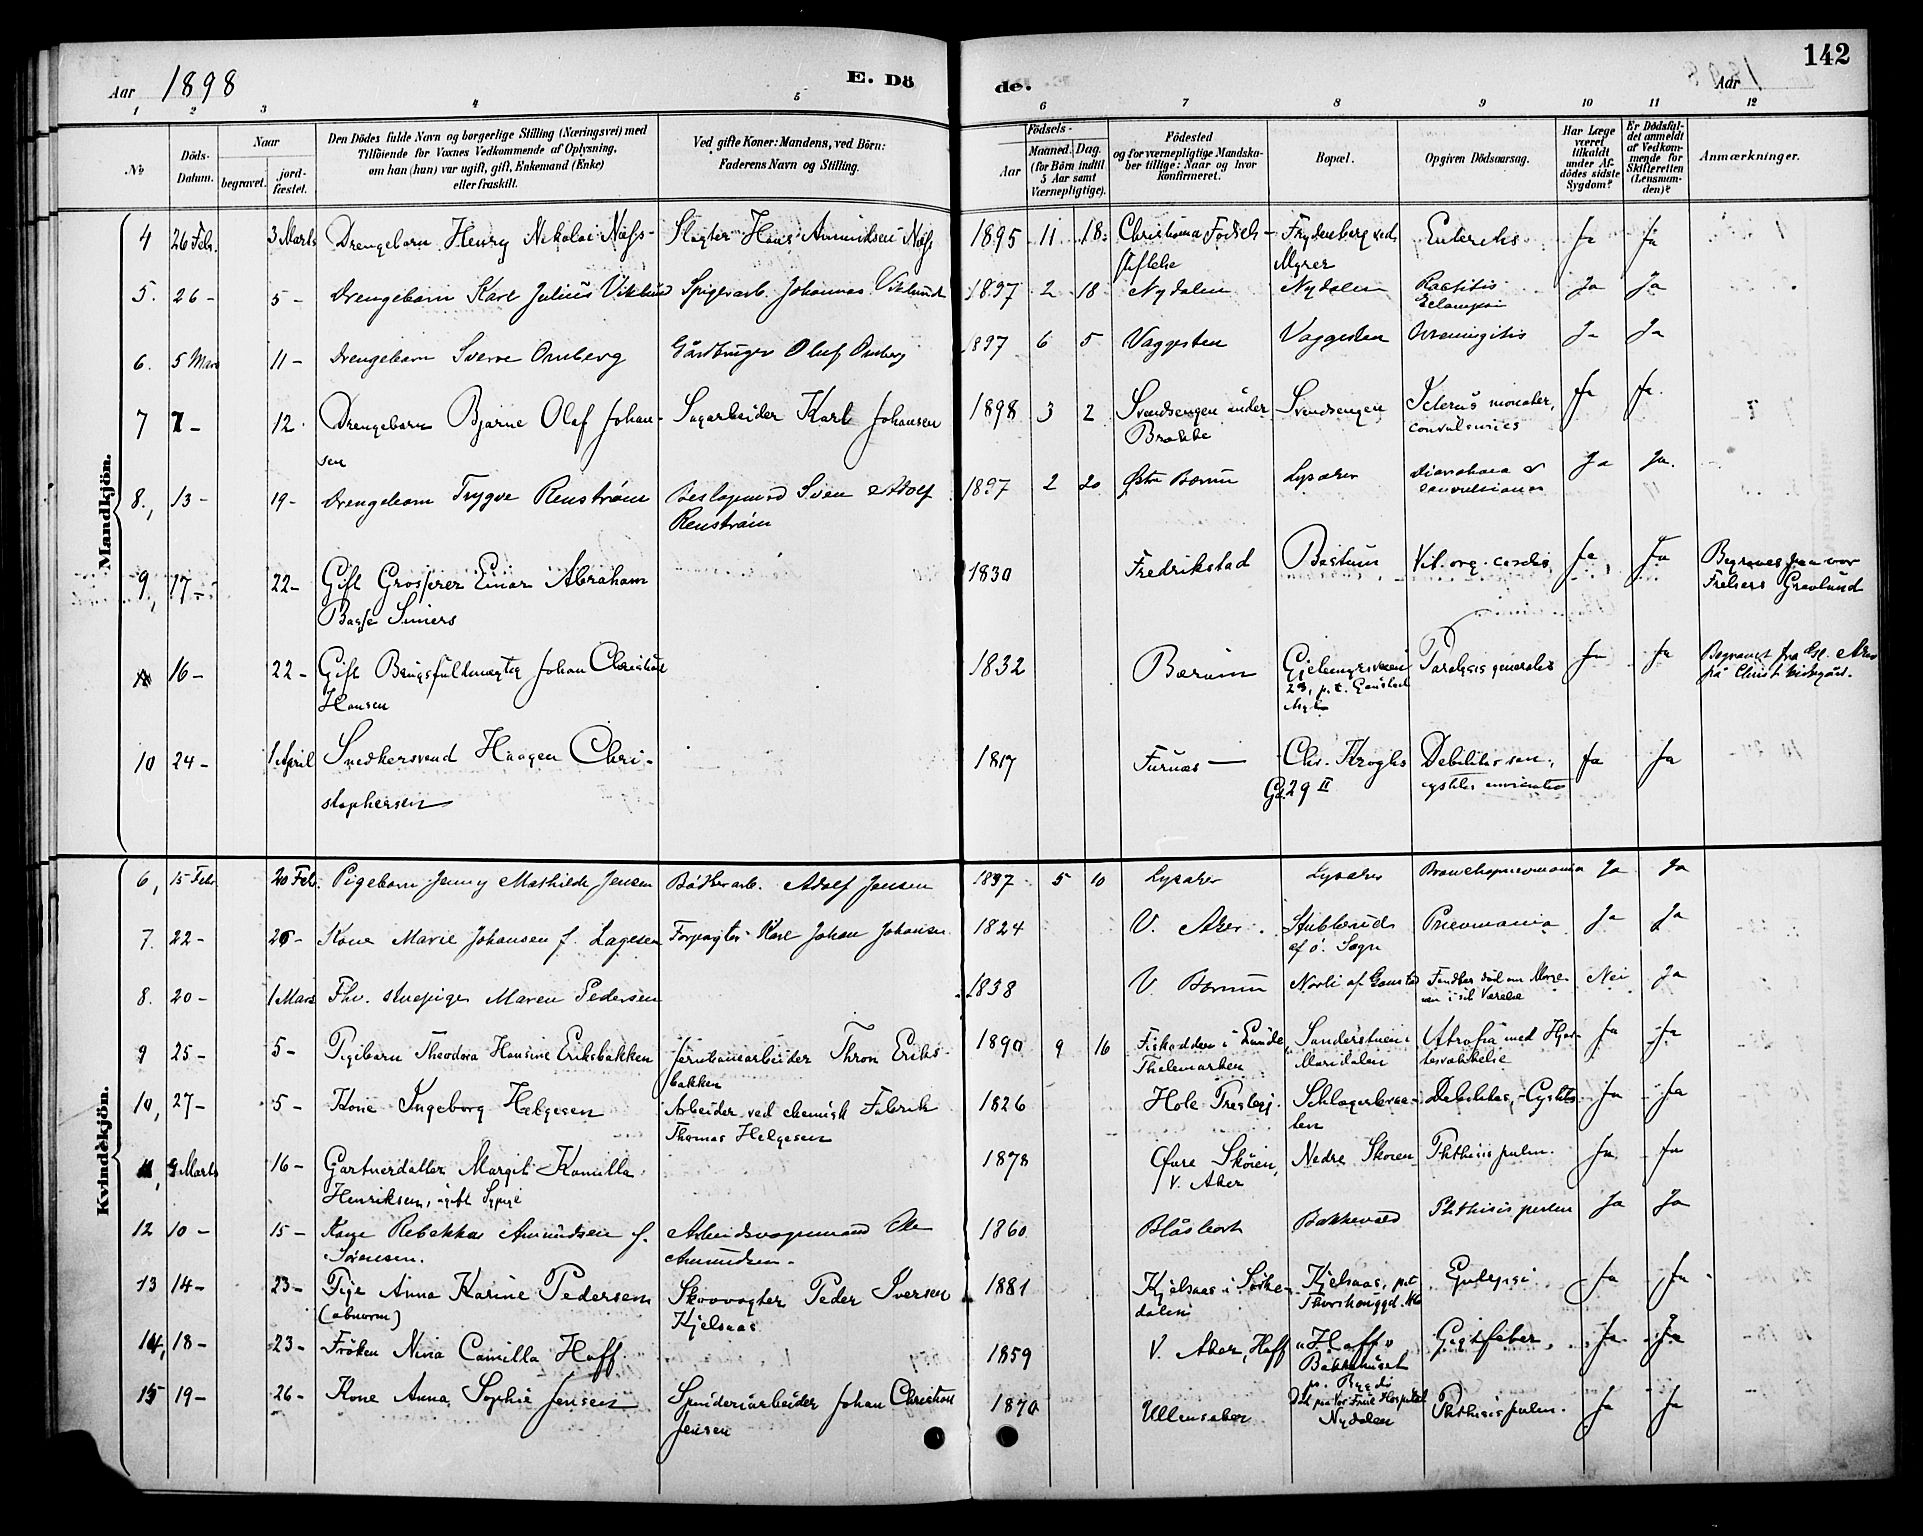 Aar 1898
E. Döde.
142
Aar
1 2 3 4 5 6 7 8 9 10 11 12
No
Döds-Datum.
Naar
begravet.
jordfæstet.
Den Dödes fulde Navn og borgerlige Stilling (Næringsvei) med
Tilföiende for Voxnes Vedkommende af Oplysning,
om han (hun) var ugift, gift, Enkemand (Enke)
eller fraskilt.
Ved gifte Koner: Mandens, ved Börn:
Faderens Navn og Stilling.
Födsels-
Aar
Maaned. Dag.
(for Börn indtil
5 Aar samt
Værnepligtige).
Födested
og for værnepligtige Mandska-
ber tillige: Naar og hvor
konfirmeret.
Bopæl.
Opgiven Dödsaarsag.
Har Læge
været
tilkaldt
under Af-
dödes sidste
Sygdom?
Er Dödsfal-
det anmeldt
af Vedkom-
mende for
Skifteretten
(Lensman-
den)?
Anmærkninger.
Mandkjön.
4 26 Feb. 3 Marts Drengebarn Henry Nikolai Næss- Slagter Hans Amundsen Næss 1895 11 18 Christiania Födsels- Frydenberg ved Enteritis Ja Ja
stiftelse Myrer
5. 26 - 5 - Drengebarn Karl Julius Viklund Spigerarb. Johannes Viklund 1897 2 18 Nydalen Nydalen Rachitis Ja Ja
Eclampsi
6. 5 Mars 11 - Drengebarn Sverre Omberg Gårdbruger Oluf Omberg 1897 6 5 Vaggesten Vaggesten Meningitis Ja Ja
7 7 - 12 Drengebarn Bjarne Olaf Johan- Sagarbeider Karl Johansen 1898 3 2 Svendsengen under Svendsengen Icterus Ja Ja.
sen Brække
8., 13 - 19 - Drengebarn Trygve Renström Sven Adolf 1897 2 20 Østre Bærum Lysaker Diarrhoea & Ja Ja.
Renström convulsiones
9, 17 - 22 - Gift Grosserer Einar Abraham 1830 Fredrikstad Bestum Vit. org. cordis Ja Ja Begraves paa vor
Basse Simers Frelsers Gravlund
16 - 22 - Gift Johan Christian 1832 Bærum Paralysis generalis Ja Ja Begravet fra Gl. Aker
Hansen 23, p.t. Gaustad på Christ kirkegård.
10 24 - 1 April Snedkersvend Haagen Chri- 1817 Furnæs Chr. Kroghs Debilitas sen., Ja Ja
stophersen Gd. 29 II
Kvindekjön.
6, 15 Feb. 20 Feb. Pigebarn Jenny Mathilde Jensen Bödkerarb. Adolf Jensen 1897 5 10 Lysaker Lysaker Bronchopneumonia Ja Ja
7. 22 - 26 - Kone Marie Johansen f. Lagesen Forpagter Karl Johan Johansen 1824 V. Aker. Stubberud Pneumonia Ja Ja
af ö. Sogn
8. 20 - 1 Mars Fhv. Maren Pedersen 1838 V. Bærum Norli af Gaustad Fundet död om Morge- Nei Ja
nen i sit Værelse
9 25 - 5 - Pigebarn Theodora Hansine Eriksbakken Jernbanearbeider Thron Eriks- 1890 9 16 Fiskodden i Lunde, Sanderstuen i Atrofia med Hjer- Ja Ja
bakken Thelemarken Maridalen
10, 27 - 5 - Kone Ingeborg Helgesen Arbeider ved chemisk Fabrik 1826 Hole Prestegj. Debilitas, - Ja Ja
Thomas Helgesen
11, 9 Marts 16 - Gartnerdatter Margit Kamilla 1878 Øvre Skøien, Nedre Skøien Phthisis pulm. Ja Ja
Henriksen, ugift Sypige V. Aker
12 10 - 15 - Kone Rebekka Amundsen f. Arbeidsvognmand Ole 1860 Bakkevold Phthisis pulm Ja Ja
Sörensen. Amundsen.
13 14 - 23 - Pige Anna Karine Pedersen Skovvogter Peder Iversen 1881 Kjelsaas i Sörke- Kjelsaas, p.t. Epilepsi Ja Ja
(abnorm) Kjelsaas dalen Thorshauggd. No
14, 18 - 23 - Fröken Nina Camilla Hoff 1859 V. Aker, Hoff "Hoff" Gigtfeber Ja Ja
Bakkehuset
15 19 - 26 - Kone Anna Sophie Jensen Spinderiarbeider Johan Christian 1870 Ullensaker Död paa Vor Frue Hospital Phthisis pulm. Ja Ja
Jensen Nydalen